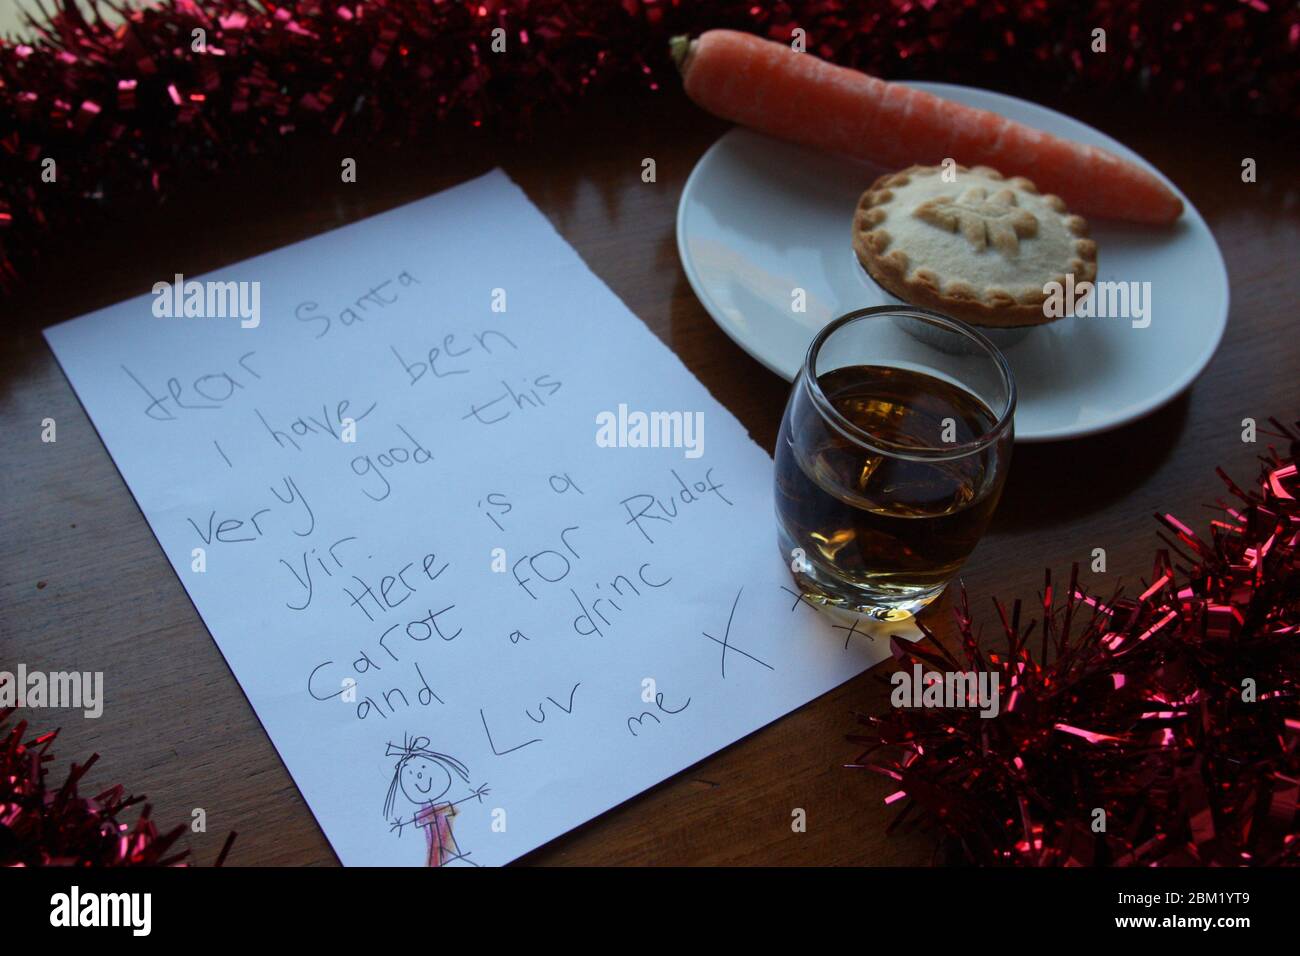 dear Santa
I have been
very good this
yir.
Here is a
carot FOR Rudof
and a drinc
Luv
me X x x x
alamy
alamy
Image ID: 2BM1YT9
www.alamy.com